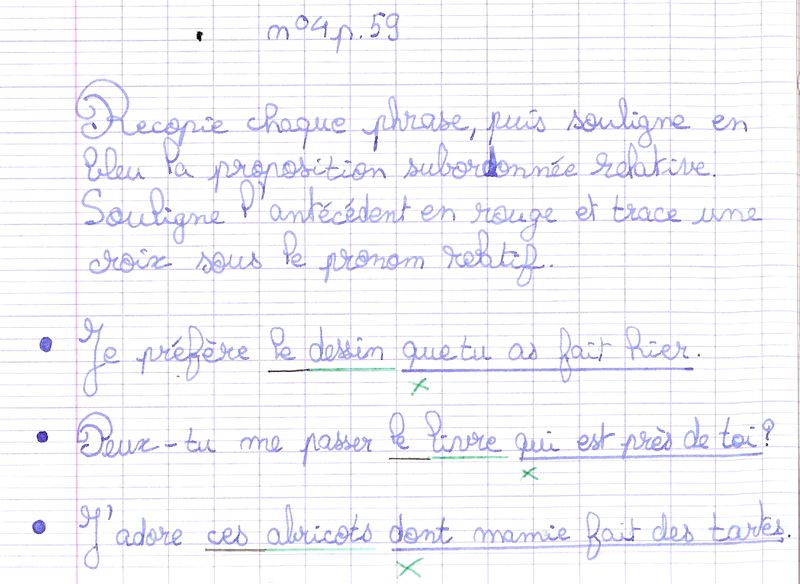 n°4 p. 59
Recopie chaque phrase, puis souligne en
bleu la proposition subordonnée relative.
Souligne l'antécédent en rouge et trace une
croix sous le pronom relatif.
Je préfère le dessin que tu as fait hier.
Peux-tu me passer le livre qui est près de toi ?
J'adore ces abricots dont mamie fait des tartes.